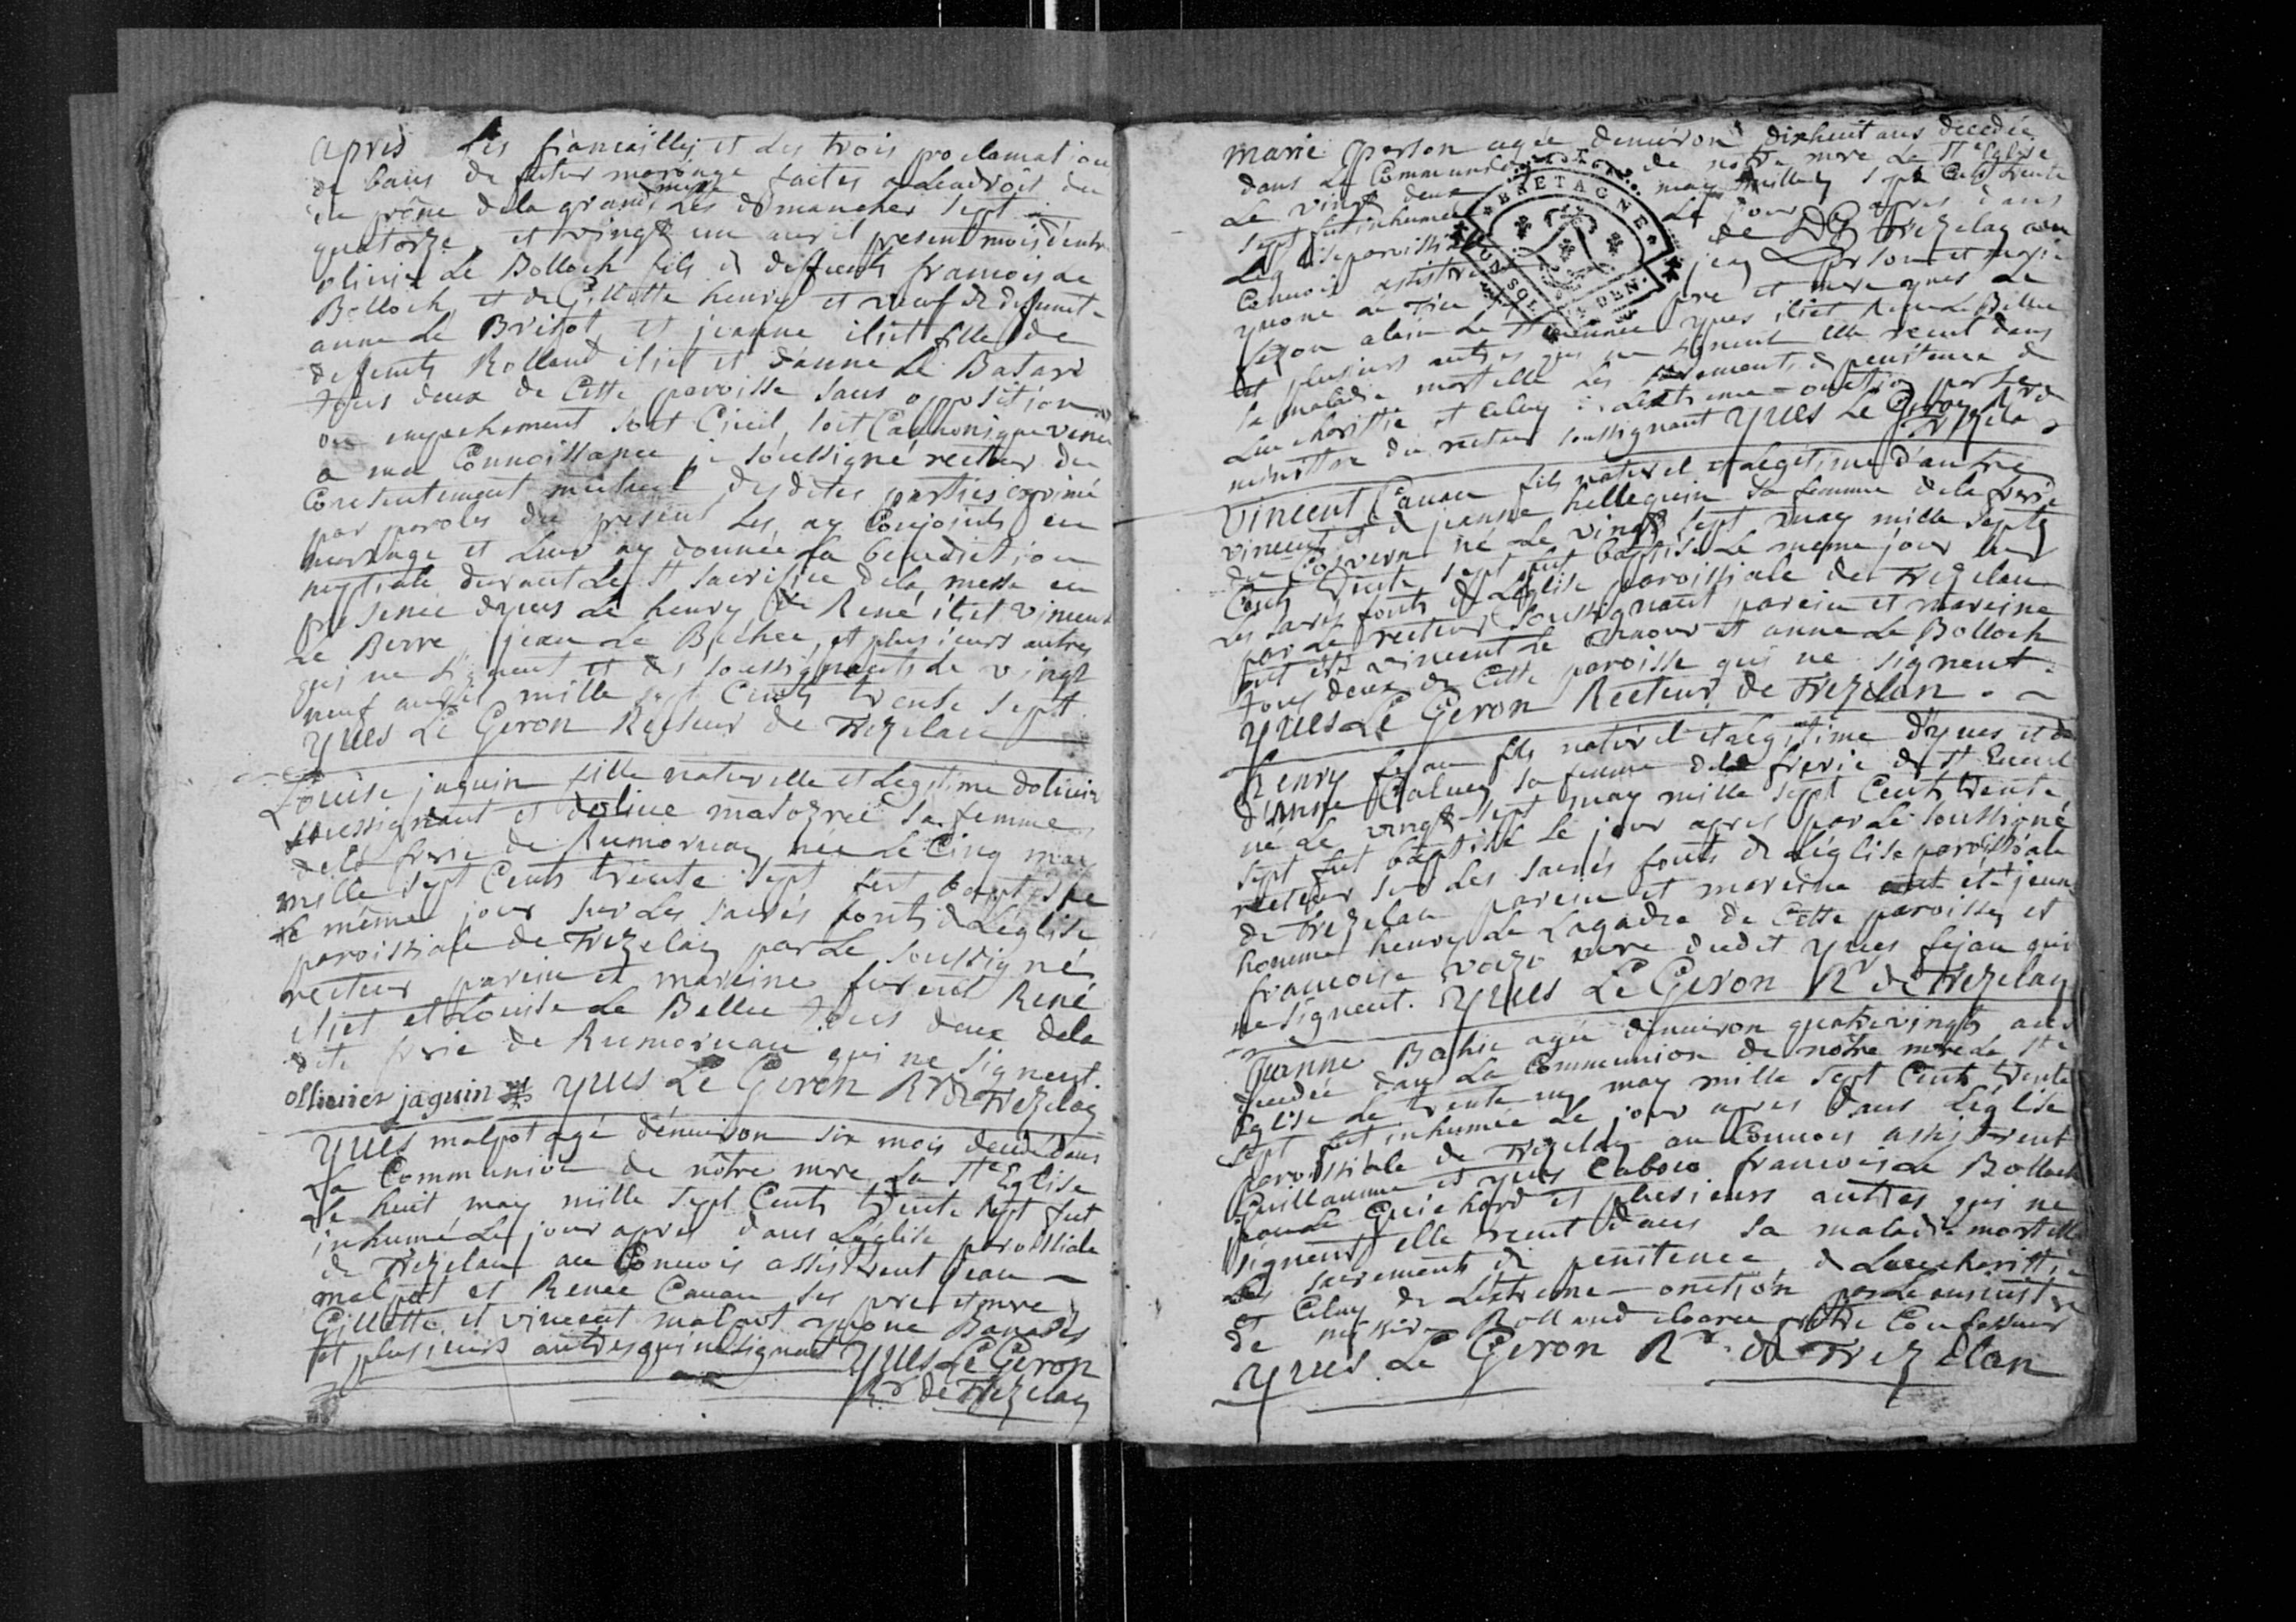 apres les fiancailles et des trois proclamation
de bans de futur mariage faites a Lendroit du
du prône dela grand messe les dimanches sept
quatorze et vingt un avril present mois dentre
olivier Le Bolloch fils de deffunts francois Le
Bolloch et de Gillette henry et veuf de defunte
anne Le Brizot et jeanne iliet fille de
defunts Rolland iliet et danne Le Batard
tous deux de Cette paroisse sans opposition
ou empechement soit Civil, soit Cannonique venu
a ma Connoissance je soussigné recteur du
Consentement mutuel desdites parties exprimé
par paroles du present Les ay Conjoints en
mariage et Leur ay donnée La benediction
nuptiale durant Le St sacrifice dela messe en
presence dyves Le henry de René iliet vincent
Le Berre jean Le Bechec, et plusieurs autres
qui ne signent et des soussignants Le vingt
neuf avril mille sept Cents trente sept
yves Le Geron Recteur de Trezelan
Louise jaguin fille naturelle et Legitime dolivier
soussignant et dolive masozree sa femme
dela frerie de Rumorvan née Le Cinq may
mille sept Cents trente sept fut baptisée
Le même jour sur Les sacrés fonts de Léglise
paroissiale de Trezelan par Le soussigné
recteur parein et mareine furent René
iliet et Louise Le Bellec tous deux dela
dite frerie de Rumorvan qui ne signent.
ollivier jaguin yves Le Geron Rr de Trezelan
yves malpot agé dénviron six mois decedé dans
La Communion de nôtre mere La Ste Eglise
Le huit may mille sept Cents trente sept fut
inhumé Le jour apres dans Léglise paroissiale
de Trezelan au Convois assisterent jean
malpot et Renee Canau ses pere et mere
Gillette et vincent malpot yvone
et plusieurs autres qui ne signent yves Le Geron
Rr de Trezelan
marie person agée denviron dixhuit ans decedée
dans La Communion de notre mere La Ste Eglise
Le vingt deux may mille sept Cents trente
sept fut inhumée Le jour apres dans
Leglise paroissiale de Trezelan au
Convois assisterent jean person et marie
yvone pere et mere yves Le
sejan alain Le yves iliet Le Bellec
et plusieurs autres qui ne signent elle recut dans
sa maladie mortelle Les sacrements de penitence de
Leucharistie et Celuy de Lextreme-onction par Le
ministre du recteur soussignant yves Le Geron Rr de
Trezelan
vincent Canau fils naturel et Legitime d'autre
vincent et de jeanne helleguin sa femme dela frerie
du né Le vingt sept may mille sept
Cents trente sept fut baptisé Le meme jour sur
Les sacrés fonts de Léglise paroissiale de Trezelan
par Le recteur soussignant parein et mareine
ont été vincent Le Chaour et anne Le Bolloch
tous deux de Cette paroisse qui ne signent.
yves Le Geron Recteur de Trezelan.
henry sejan fils naturel et Legitime dyves et de
d'anne Calvez sa femme dela frerie de St
né Le vingt-sept may mille sept Cents trente
sept fut baptisé Le jour apres par Le soussigné
recteur sur Les sacrés fonts de Léglise paroissiale
de Trezelan parein et mareine ont été jeune
homme henry Le Lagadec de Cette paroisse et
francoise mere dudit yves sejan qui
ne signent. yves Le Geron Rr de Trezelan
jeanne agée denviron quatrevingts ans
decedée dans La Communion de nôtre mere La Ste
Eglise Le trente un may mille sept Cents trente
sept fut inhumée Le jour apres dans Léglise
paroissiale de Trezelan au Convois assisterent
Guillaume et yves francois Le Bolloch
Guichard et plusieurs autres qui ne
signent elle recut dans sa maladie mortelle
Les sacrements de penitence de Leucharistie
et Celuy de Lextreme-onction par Le ministre
de missire Rolland Confesseur
yves Le Geron Rr. de Trezelan
BRETAGNE
UN SOL
DEN.